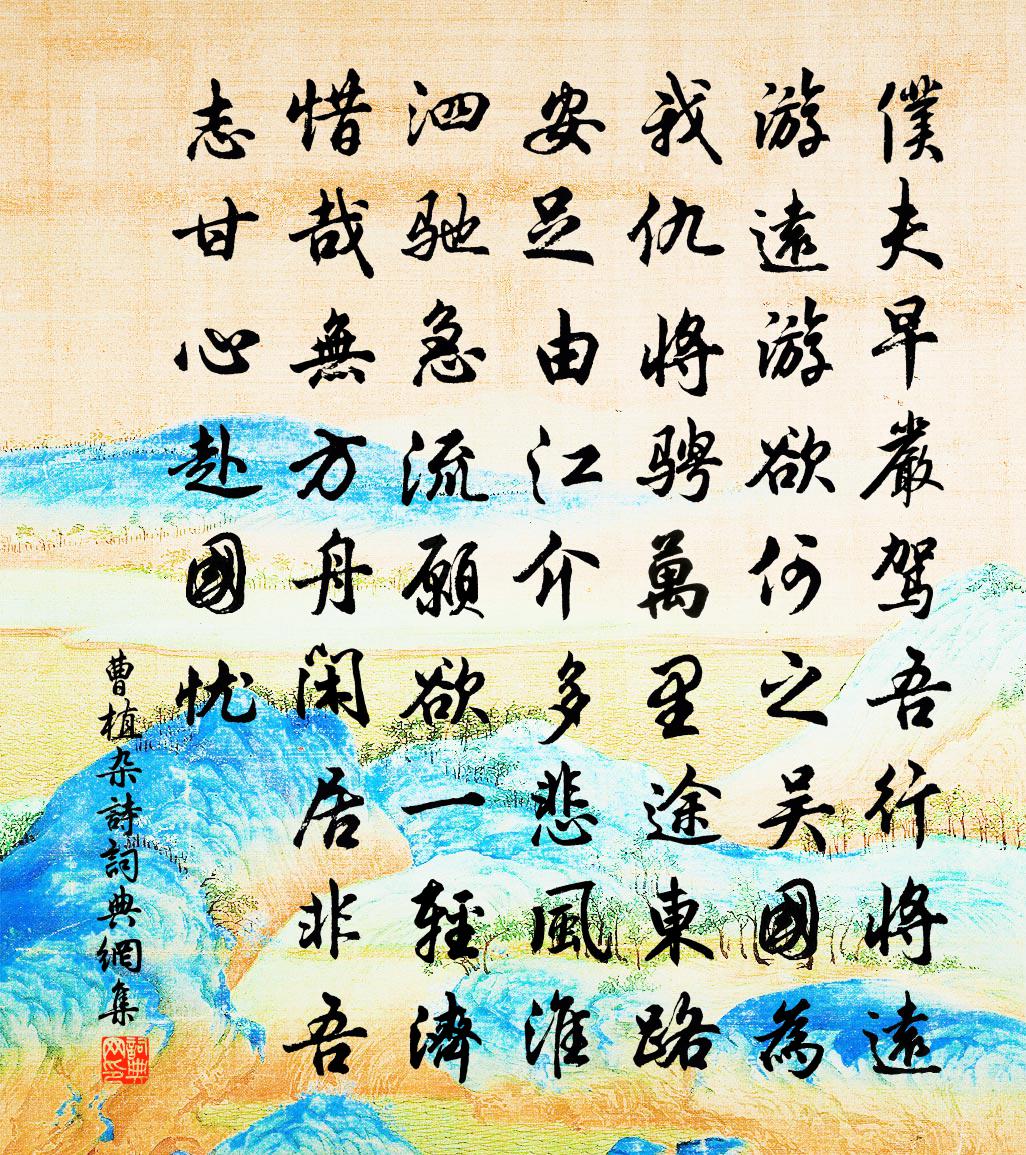 僕夫早嚴駕吾行將遠
游遠游欲何之吳國為
我仇將騁萬里途東路
安足由江介多悲風淮
泗馳急流願欲一輕濟
惜哉無方舟闲居非吾
志甘心赴國忧
曹植杂詩詞典網集
詞典网印